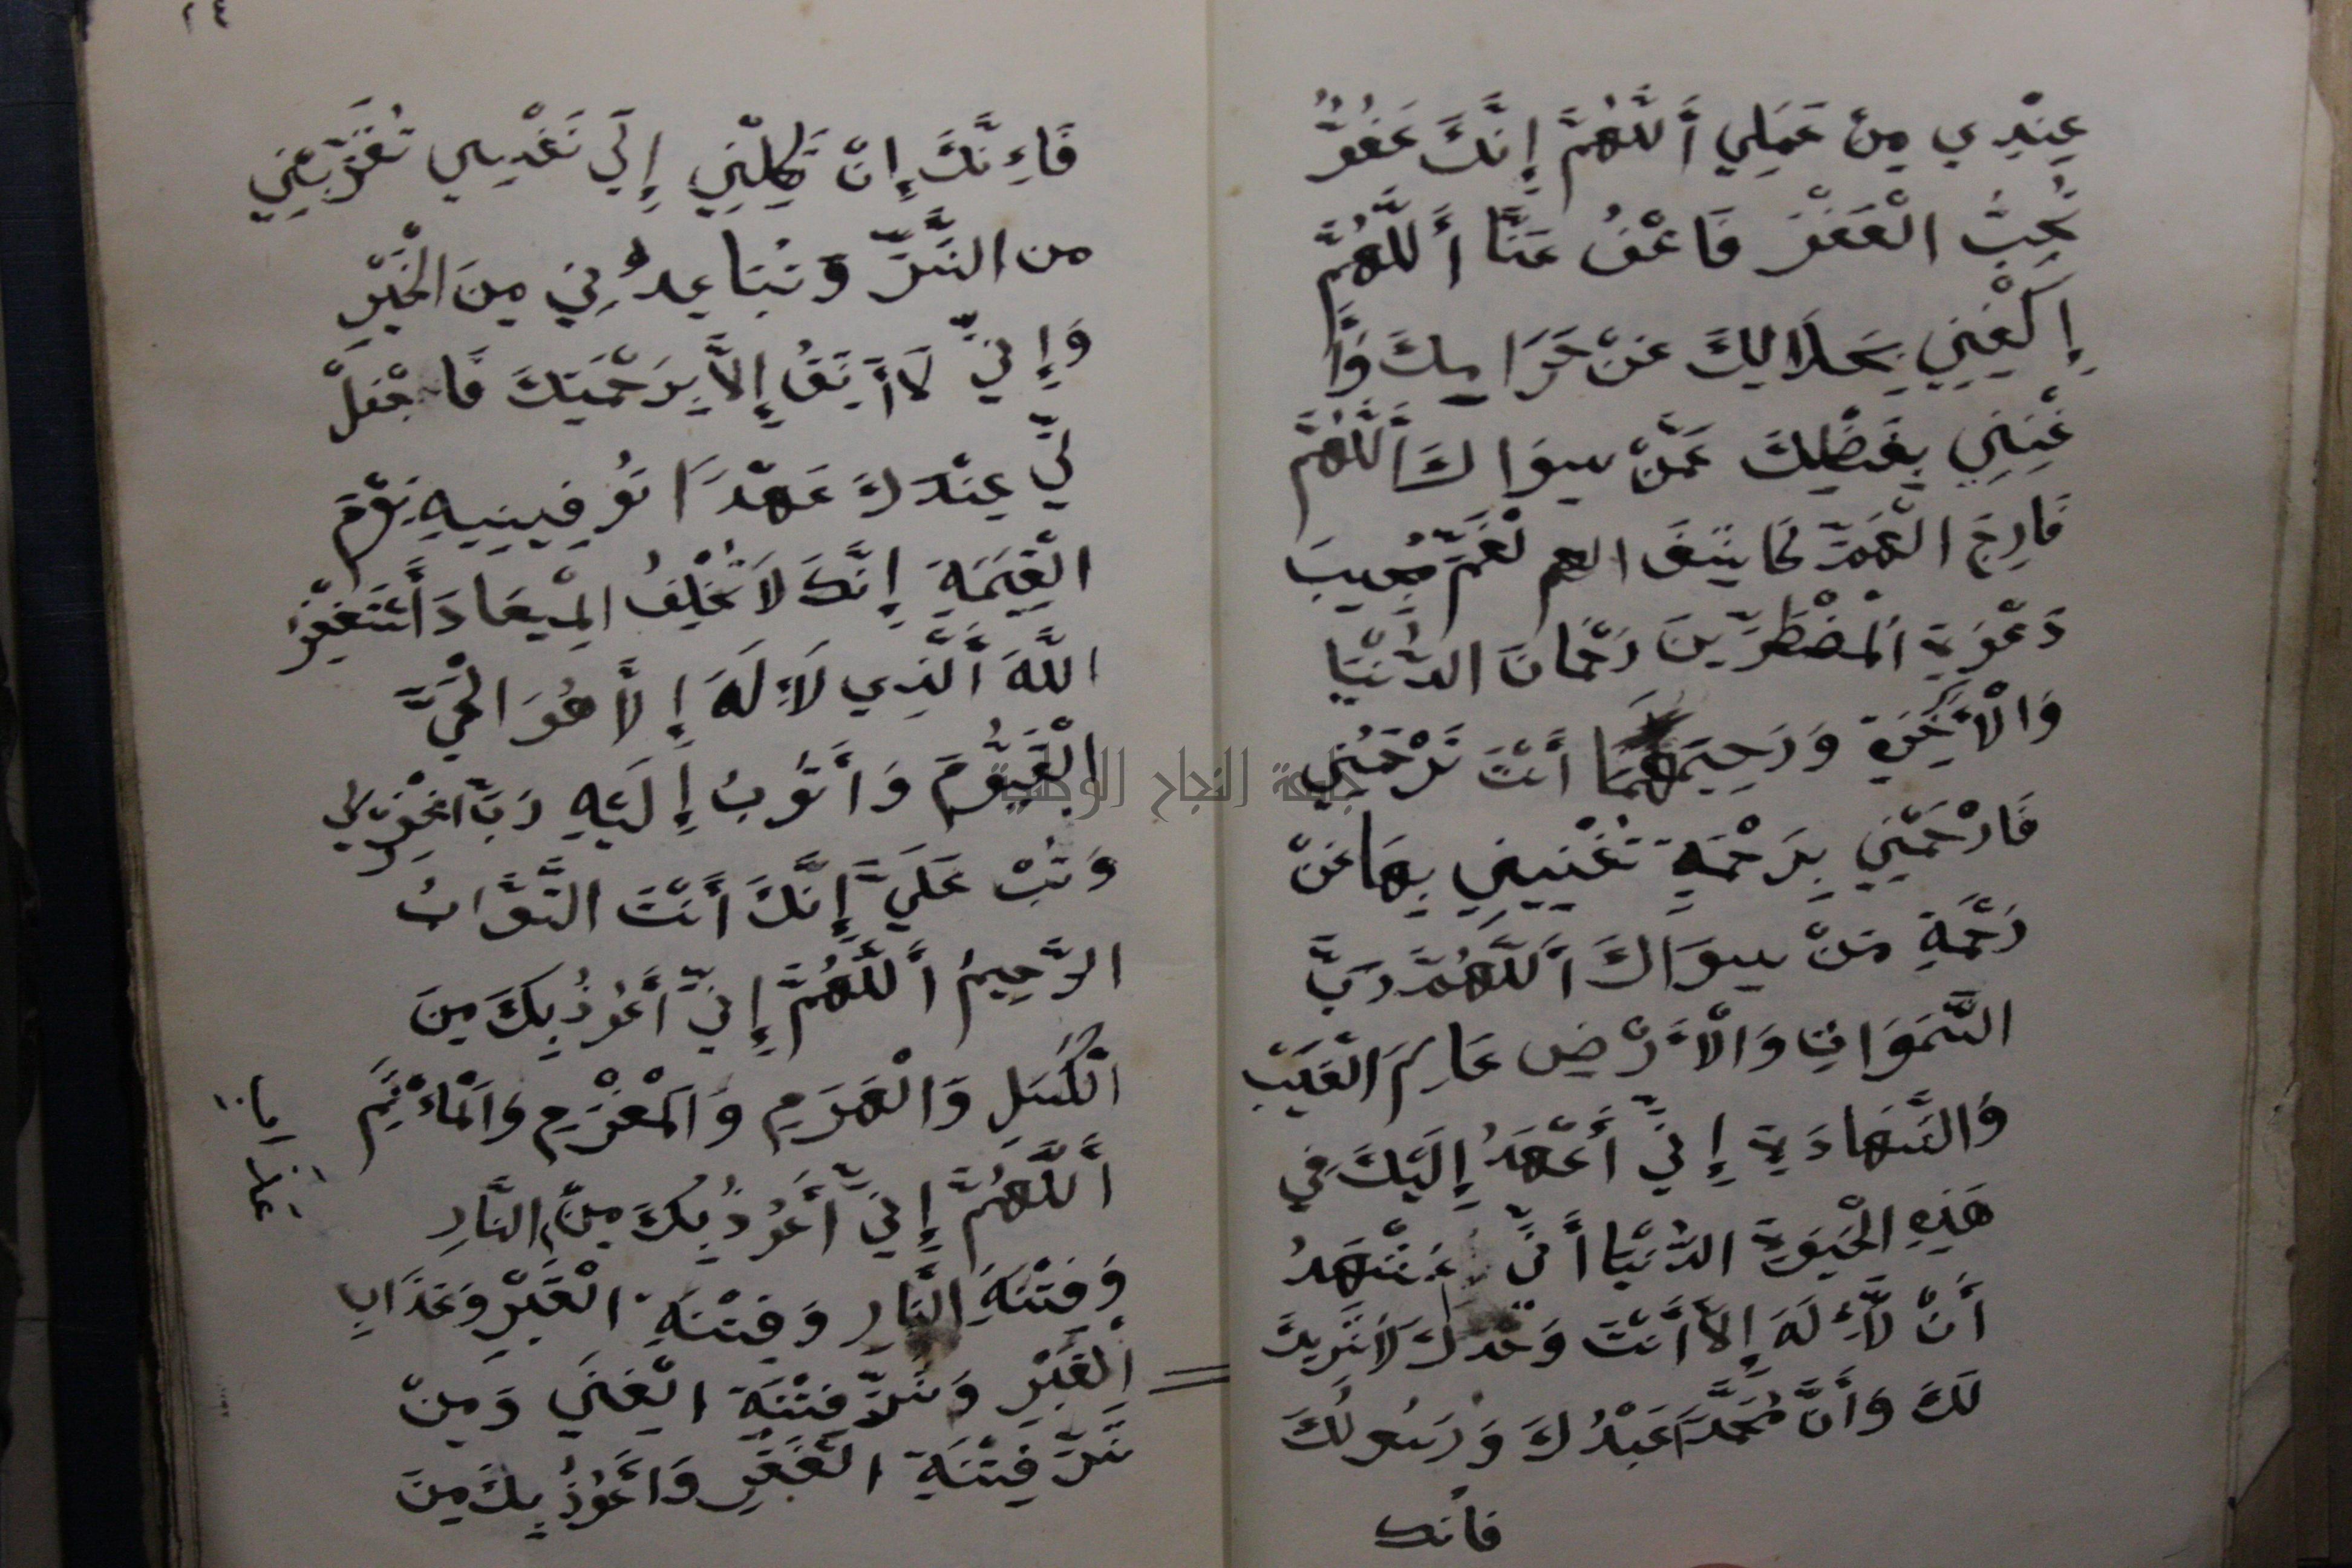 عِنْدِي مِنْ عَمَلِي أَللَّهُمَّ إِنَّكَ عَفُوٌّ
تُحِبُّ الْعَفْوَ فَاعْفُ عَنَّا أَللَّهُمَّ
إِكْفِنِي بِحَلَالِكَ عَنْ حَرَامِكَ وَأَ
غْنِنِي بِفَضْلِكَ عَمَّنْ سِوَاكَ أَللَّهُمَّ
فَارِجَ الْهَمِّ كَاشِفَ الغم لْغَمِّ مُجِيبَ
دَعْوَةِ الْمُضْطَرِّينَ رَحْمَانَ الدُّنْيَا
وَالْأَخِرَةِ وَرَحِيمَهُمَا أَنْتَ تَرْحَمُنِي
فَارْحَمْنِي بِرَحْمَةٍ تُغْنِينِي بِهَا عَنْ
رَحْمَةِ مَنْ سِوَاكَ أَللَّهُمَّ رَبَّ
السَّمَوَاتِ وَالْأَرْضِ عَالِمَ الْغَيْبِ
وَالشَّهَادَةِ إِنِّي أَعْهَدُ إِلَيْكَ فِي
هَذِهِ الْحَيَوةِ الدُّنْيَا أَنِّي أَشْهَدُ
أَنْ لَّاإِلَهَ إِلَّا أَنْتَ وَحْدَكَ لَا شَرِيكَ
لَكَ وَأَنَّ مُحَمَّدَا عَبْدُكَ وَرَسُولُكَ
فانك
٢٤
فَاءِنَّكَ إِنْ تَكِلْنِي إِلَي نَفْسِي تُقَرِّبْنِي
من الشَّرِّ وَتُبَاعِدُنِي مِنَ الْخَيْرِ
وَإِنِّي لَا أَثِقُ إِلَّا بِرَحْمَتِكَ فَاجْعَلْ
لِّي عِنْدَكَ عَهْدَا تُوفِينِيهِ يَوْمَ
الْقِيَمَةِ إِنَّكَ لَا تُخْلِفُ الْمِيعَادَ أَسْتَغْفِرُ
اللَّهَ أَلَّذِي لَاإِلَهَ إِلَّا هُوَ الْحَيَّ
الْقَيُّومَ وَأَتُوبُ إِلَيْهِ رَبِّ اغْفِرْ لِي
وَتُبْ عَلَيَّ إِنَّكَ أَنْتَ التَّوَّابُ
الرَّحِيمُ أَللَّهُمَّ إِنِّي أَعُوذُ بِكَ مِنَ
الْكَسَلِ وَالْهَرَمِ وَالْمَغْرَمِ وَالْمَاءْثَمِ
أَللَّهُمَّ إِنِّي أَعُوذُ بِكَ مِنْ النَّارِ
وَفِتْنَةِ النَّارِ وَفِتْنَةِ الْقَبْرِ وَعَذَابِ
الْقَبْرِ وَشَرِّ فِتْنَةِ الْغِنَي وَمِنْ
شَرِّ فِتْنَةِ الْفَقْرِ وَأَعُوذُ بِكَ مِنَ
جامعة النجاح الوطنية